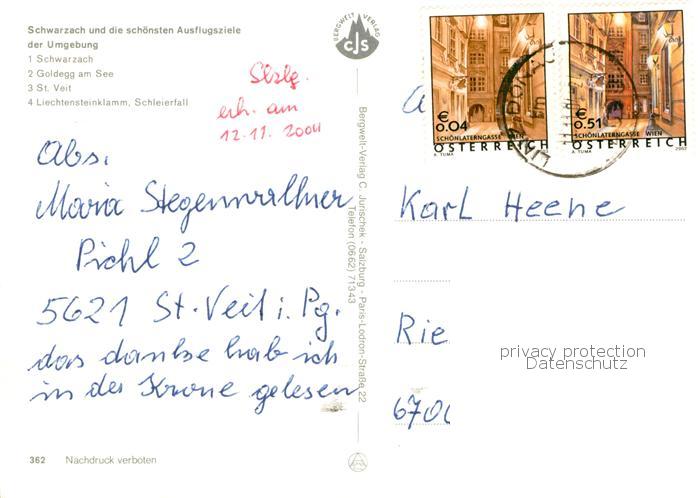 Schwarzach und die schönsten Ausflugsziele
der Umgebung
1 Schwarzach
2 Goldegg am See
3 St. Veit
4 Liechtensteinklamm, Schleierfall
BERGWELT VERLAG
CJS
Slzbg.
erh. am
12.11.2004
Abs.
Maria Stegenwallner
Pichl 2
5621 St. Veit i. Pg.
das danke hab ich
in der Krone gelesen
362 Nachdruck verboten
Bergwelt-Verlag C. Jurischek - Salzburg - Paris-Lodron-Straße 22
Telefon (0662) 71343
€ 0.04
SCHÖNLATERNGASSE WIEN
ÖSTERREICH
A. TUMA 2003
€ 0.51
SCHÖNLATERNGASSE WIEN
ÖSTERREICH
A. TUMA 2002
Karl Heene
Rie
670
privacy protection
Datenschutz